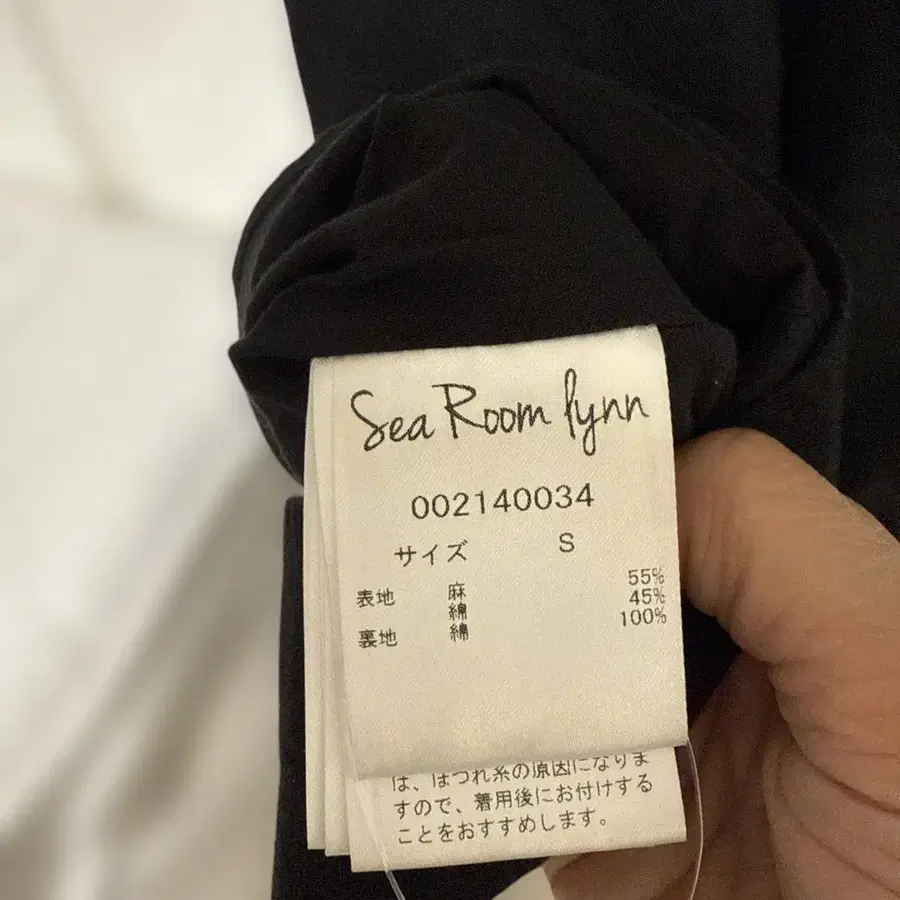 Sea Room lynn
002140034
サイズ S
表地 麻 55%
綿 45%
裏地 綿 100%
は、ほつれ糸の原因になりま
すので、着用後にお付けする
ことをおすすめします。